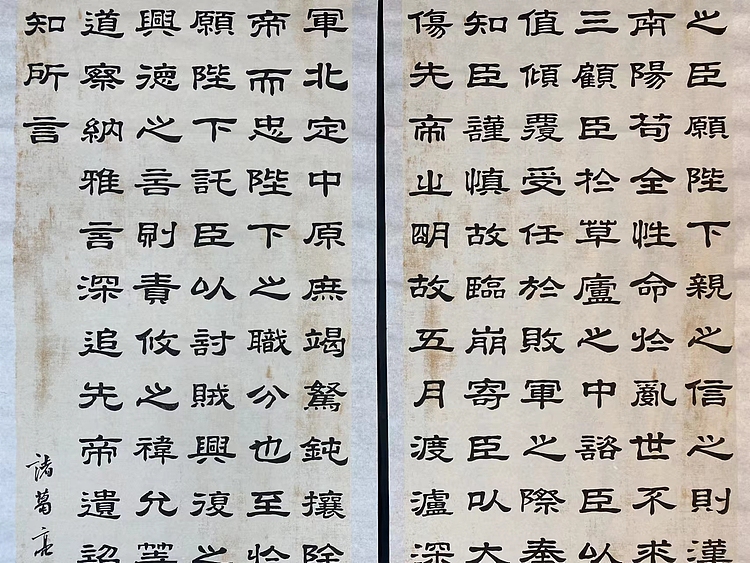 之臣願陛下親之信之則漢
南陽苟全性命於亂世不求
三顧臣於草廬之中諮臣以
值傾覆受任於敗軍之際奉
知臣謹慎故臨崩寄臣以大
傷先帝之明故五月渡瀘深
軍北定中原庶竭駑鈍攘除
帝而忠陛下之職分也至於
願陛下託臣以討賊興復之
興德之言則責攸之禕允等
道察納雅言深追先帝遺詔
知所言
諸葛亮